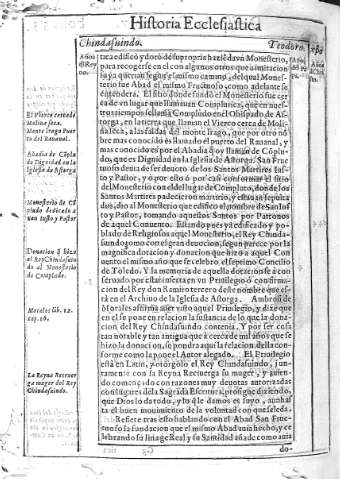 Historia Ecclesiastica
Chindasuindo.
Teodoro.
tae edificò y dotò de su propria hazienda vn Monesterio,
para recogerse en el con algunos otros que a imitacion
suya querian seguir el mismo camino, del qual Mones-
terio fue Abad el mismo Fructuoso, como adelante se
entendera. El sitio donde fundò el Monesterio fue cer-
ca de vn lugar que llamauan Complutica, que en nues-
tros tiempos se llama Compludo en el Obispado de As-
torga, en la tierra que llaman el Vierço cerca de Moli-
naseca, a las faldas del monte Irago, que por otro nõ-
bre mas conocido es llamado el puerto del Rauanal, y
mas conocido es por el Abadia q̃ llaman de Cõplu-
do, que es Dignidad en la Iglesia de Astorga. San Fruc-
tuoso deuia de ser deuoto de los Santos Martires Ius-
to y Pastor, y o por esto ò por casi conformar el sitio
del Monesterio con el de lugar de Compluto, donde los
Santos Martires padecieron martirio, y estauan sepulta-
dos, dio al Monesterio que edificò el nombre de San Ius-
to y Pastor, tomando aquestos Santos por Patronos
de aquel Conuento. Estando pues ya edificado y po-
blado de Religiosos aquel Monesterio, el Rey Chinda-
suindo como con gran deuocion, segun parece por la
magnifica dotacion y donacion que hizo a aquel Con
uento el mismo año que se celebro el septimo Concilio
de Toledo. Y la memoria de aquella dotacion se à con
seruado por estar inserta en vn Priuilegio ò confirma-
cion del Rey don Ramiro tercero deste nombre que es-
tà en el Archiuo de la Iglesia de Astorga. Ambrosio de
Morales afirma auer visto aquel Priuilegio, y dize que
en el se pone en relacion la sustancia de lo que la dona-
cion del Rey Chindasuindo contenia. Y por ser cosa
tan notable y tan antigua que à cerca de mil años que se
hizo la donacion, se pondra aqui la relacion della con-
forme como la pone el Autor alegado. El Priuilegio
està en Latin, y otorgòlo el Rey Chindasuindo, jun-
tamente con la Reyna Reciuerga su muger, y auien-
do començado con razones muy deuotas autorizadas
con lugares de la Sagrada Escritura, prosigue diziendo,
que Dios lo da todo, y lo que damos es suyo, aunque
està el buen mouimiento de la voluntad con que se le da.
Refiere tras esto hablando con el Abad San Fruc-
tuoso la fundacion que el mismo Abad auia hecho, y ce-
lebrando su linage Real y su Santidad añade como auia
do-
El Puerto cercado
Molina seca.
Monte Irago Puer
to del Rauanal.
Abadia de Cõplu
do Dignidad en la
Iglesia de Astorga
Monesterio de Cõ
pludo dedicado a
san Iusto y Pastor
Donacion q̃ hizo
el Rey Chindasuindo
al Monesterio
de Compludo.
Morales lib. 12.
La Reyna Reciuer
ga muger del Rey
Chindasuindo.